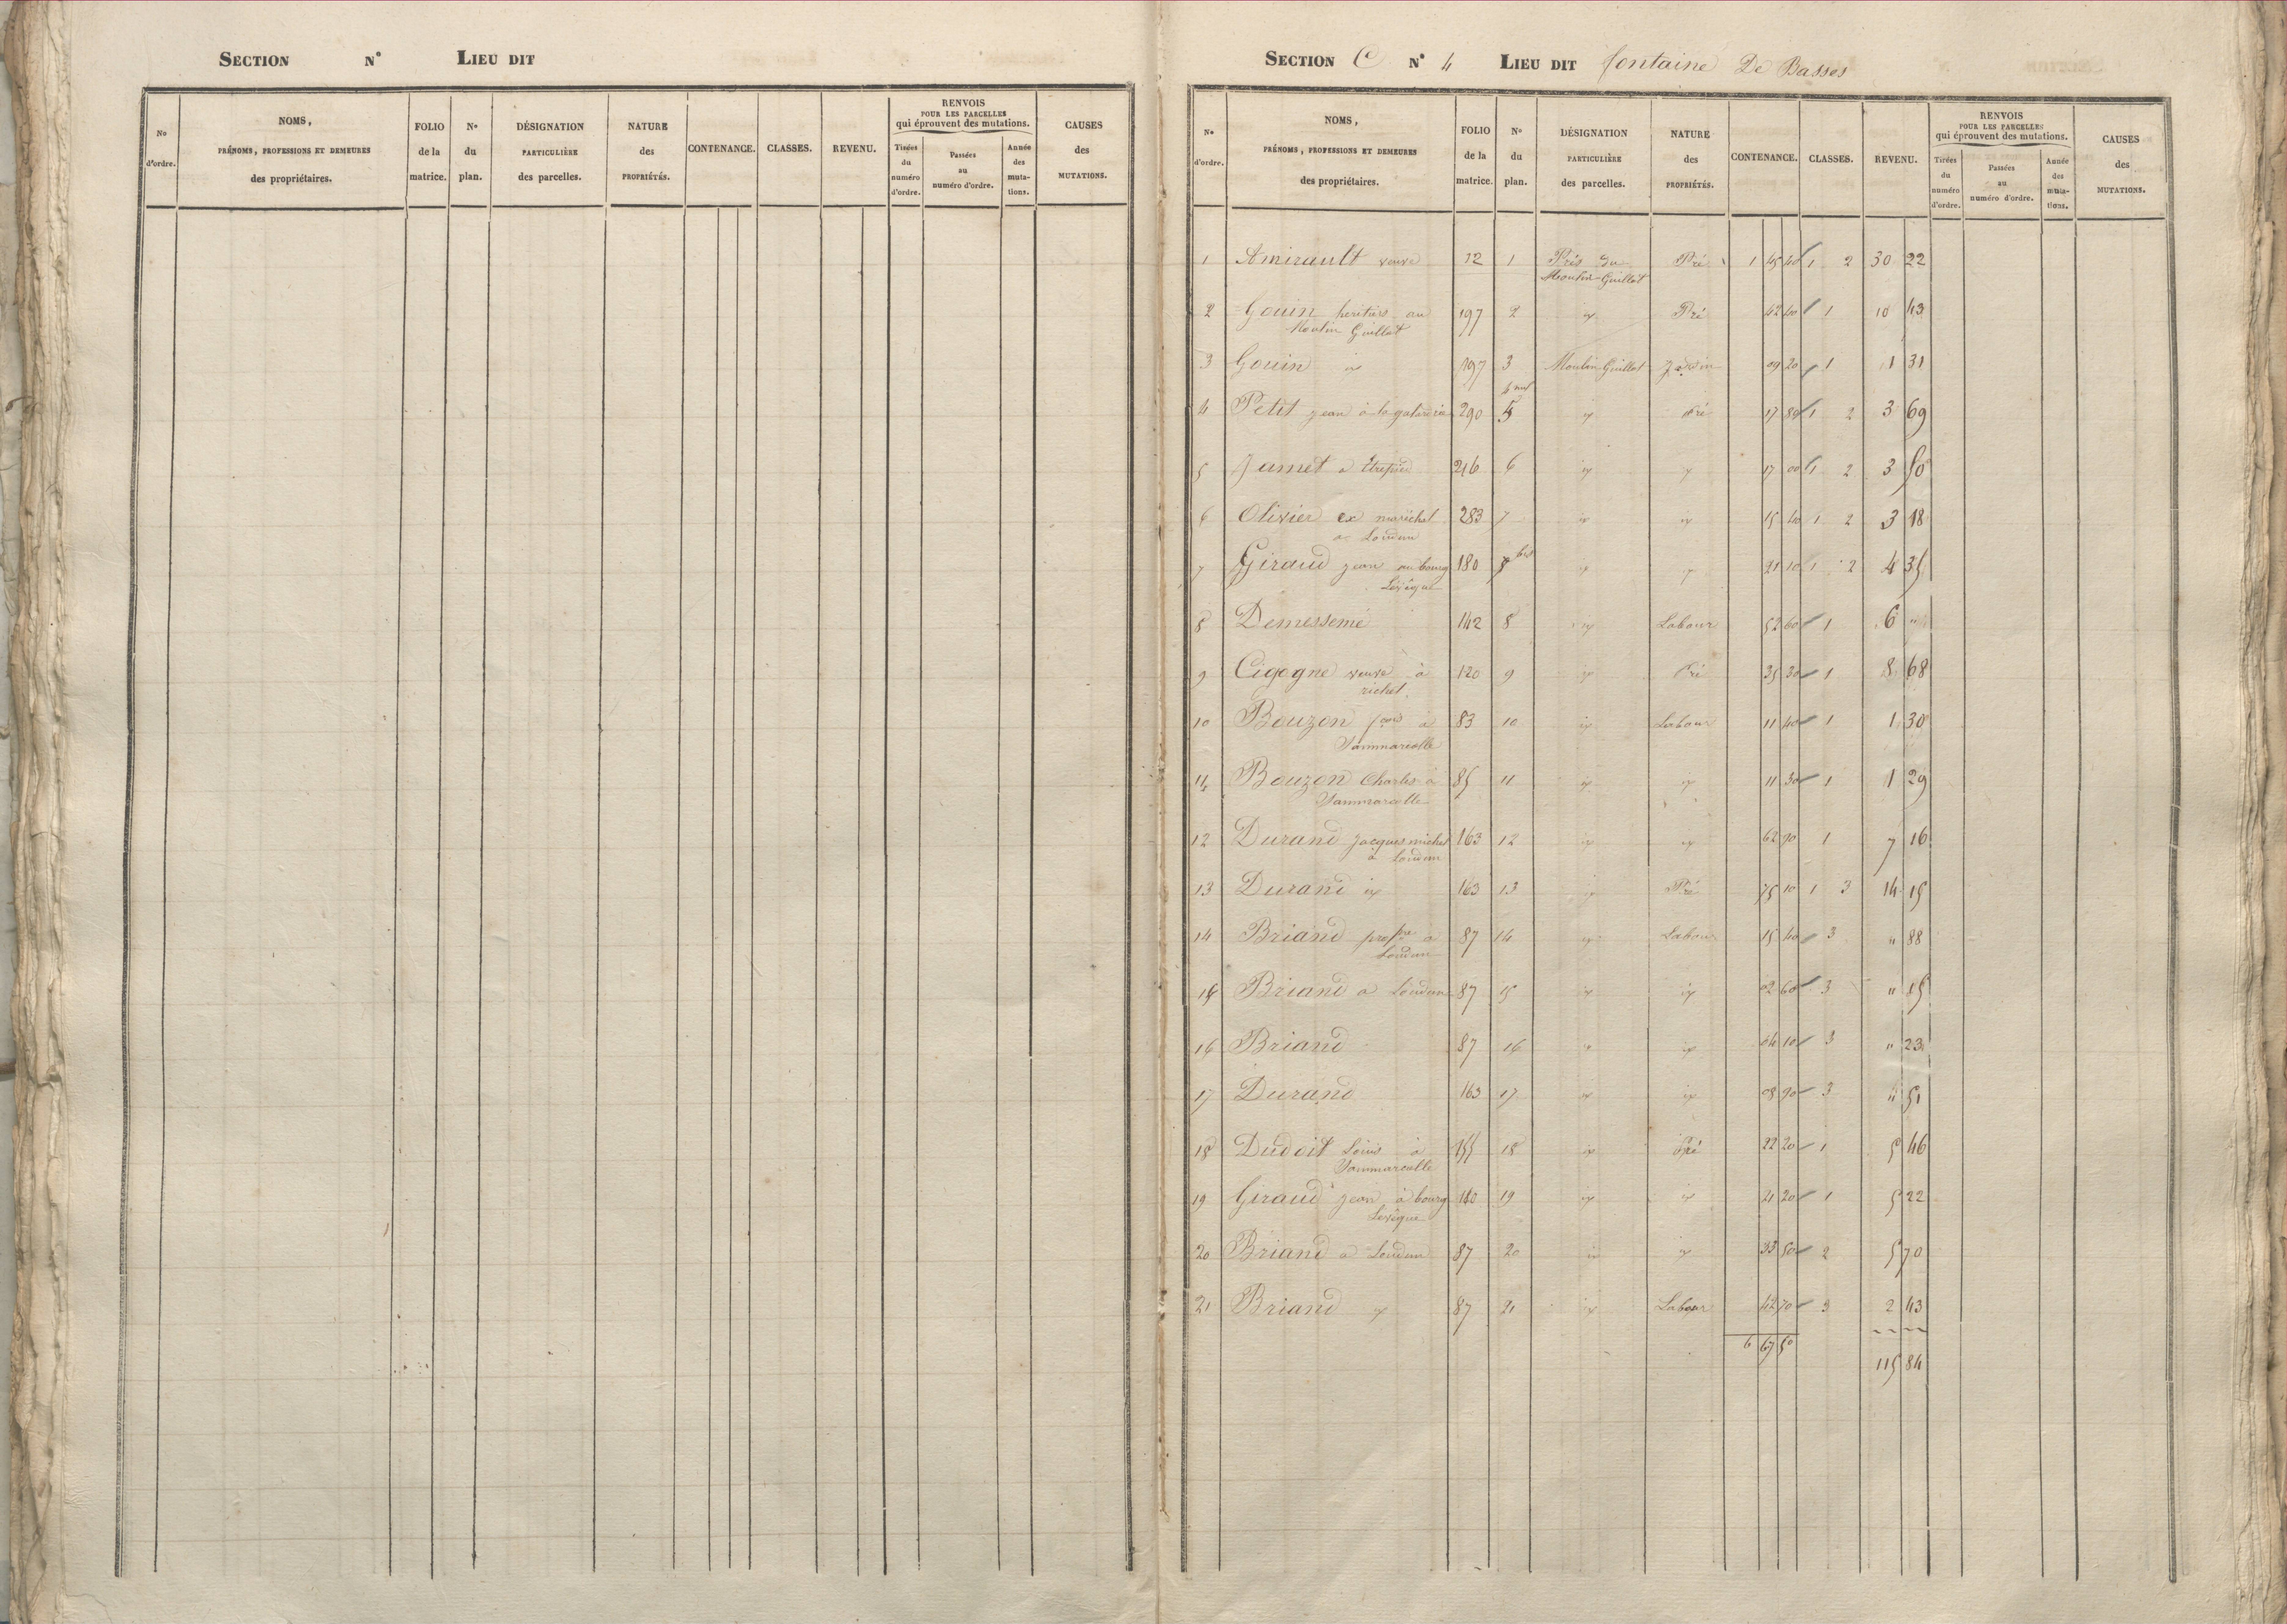 SECTION N° LIEU DIT
No d'ordre.
NOMS, PRÉNOMS, PROFESSIONS ET DEMEURES des propriétaires.
FOLIO de la matrice.
No du plan.
DÉSIGNATION PARTICULIÈRE des parcelles.
NATURE des PROPRIÉTÉS.
CONTENANCE.
CLASSES.
REVENU.
RENVOIS POUR LES PARCELLES qui éprouvent des mutations.
Tirées du numéro d'ordre.
Passées au numéro d'ordre.
Année des mutations.
CAUSES des MUTATIONS.
SECTION C N° 4 LIEU DIT fontaine De Basses
No d'ordre.
NOMS, PRÉNOMS, PROFESSIONS ET DEMEURES des propriétaires.
FOLIO de la matrice.
No du plan.
DÉSIGNATION PARTICULIÈRE des parcelles.
NATURE des PROPRIÉTÉS.
CONTENANCE.
CLASSES.
REVENU.
RENVOIS POUR LES PARCELLES qui éprouvent des mutations.
Tirées du numéro d'ordre.
Passées au numéro d'ordre.
Année des mutations.
CAUSES des MUTATIONS.
1 Amirault veuve 12 1 Prés du Pré 1 45 40 1 2 30 22
Moulin-Guillot
2 Gouin héritiers au 197 2 id Pré 42 40 1 10 43
Moulin Guillot
3 Gouin id 197 3 Moulin-Guillot jardin 09 20 1 1 31
4 Petit jean 290 5 id Pré 17 80 1 2 3 69
5 Jamet a 216 6 id id 17 00 1 2 3 50
6 Olivier ex maréchal 283 7 id id 15 40 1 2 3 18
a Loudun
7 Giraud jean au bourg 180 7 bis id id 21 10 1 2 4 35
Levêque
8 Demessemé 142 8 id Labour 52 60 1 6 "
9 Cigogne veuve à 120 9 id Pré 35 30 1 8 68
richet
10 Bouzon fois à 83 10 id Labour 11 40 1 1 30
Sammarcolle
11 Bouzon Charles à 85 11 id id 11 30 1 1 29
Sammarcolle
12 Durand jacques michel 163 12 id id 62 90 1 7 16
à Loudun
13 Durand id 163 13 id Pré 75 10 1 3 14 15
14 Briand à 87 14 id Labour 15 40 3 " 88
Loudun
15 Briand a Loudun 87 15 id id 02 60 3 " 15
16 Briand 87 16 id id 04 10 3 " 23
17 Durand 163 17 id id 08 90 3 " 51
18 Dudoit Louis à 155 18 id Pré 22 20 1 5 46
Sammarcolle
19 Giraud jean à bourg 180 19 id id 21 20 1 5 22
Levêque
20 Briand a Loudun 87 20 id id 33 50 2 5 70
21 Briand id 87 21 id Labour 42 70 3 2 43
6 67 50
115 84